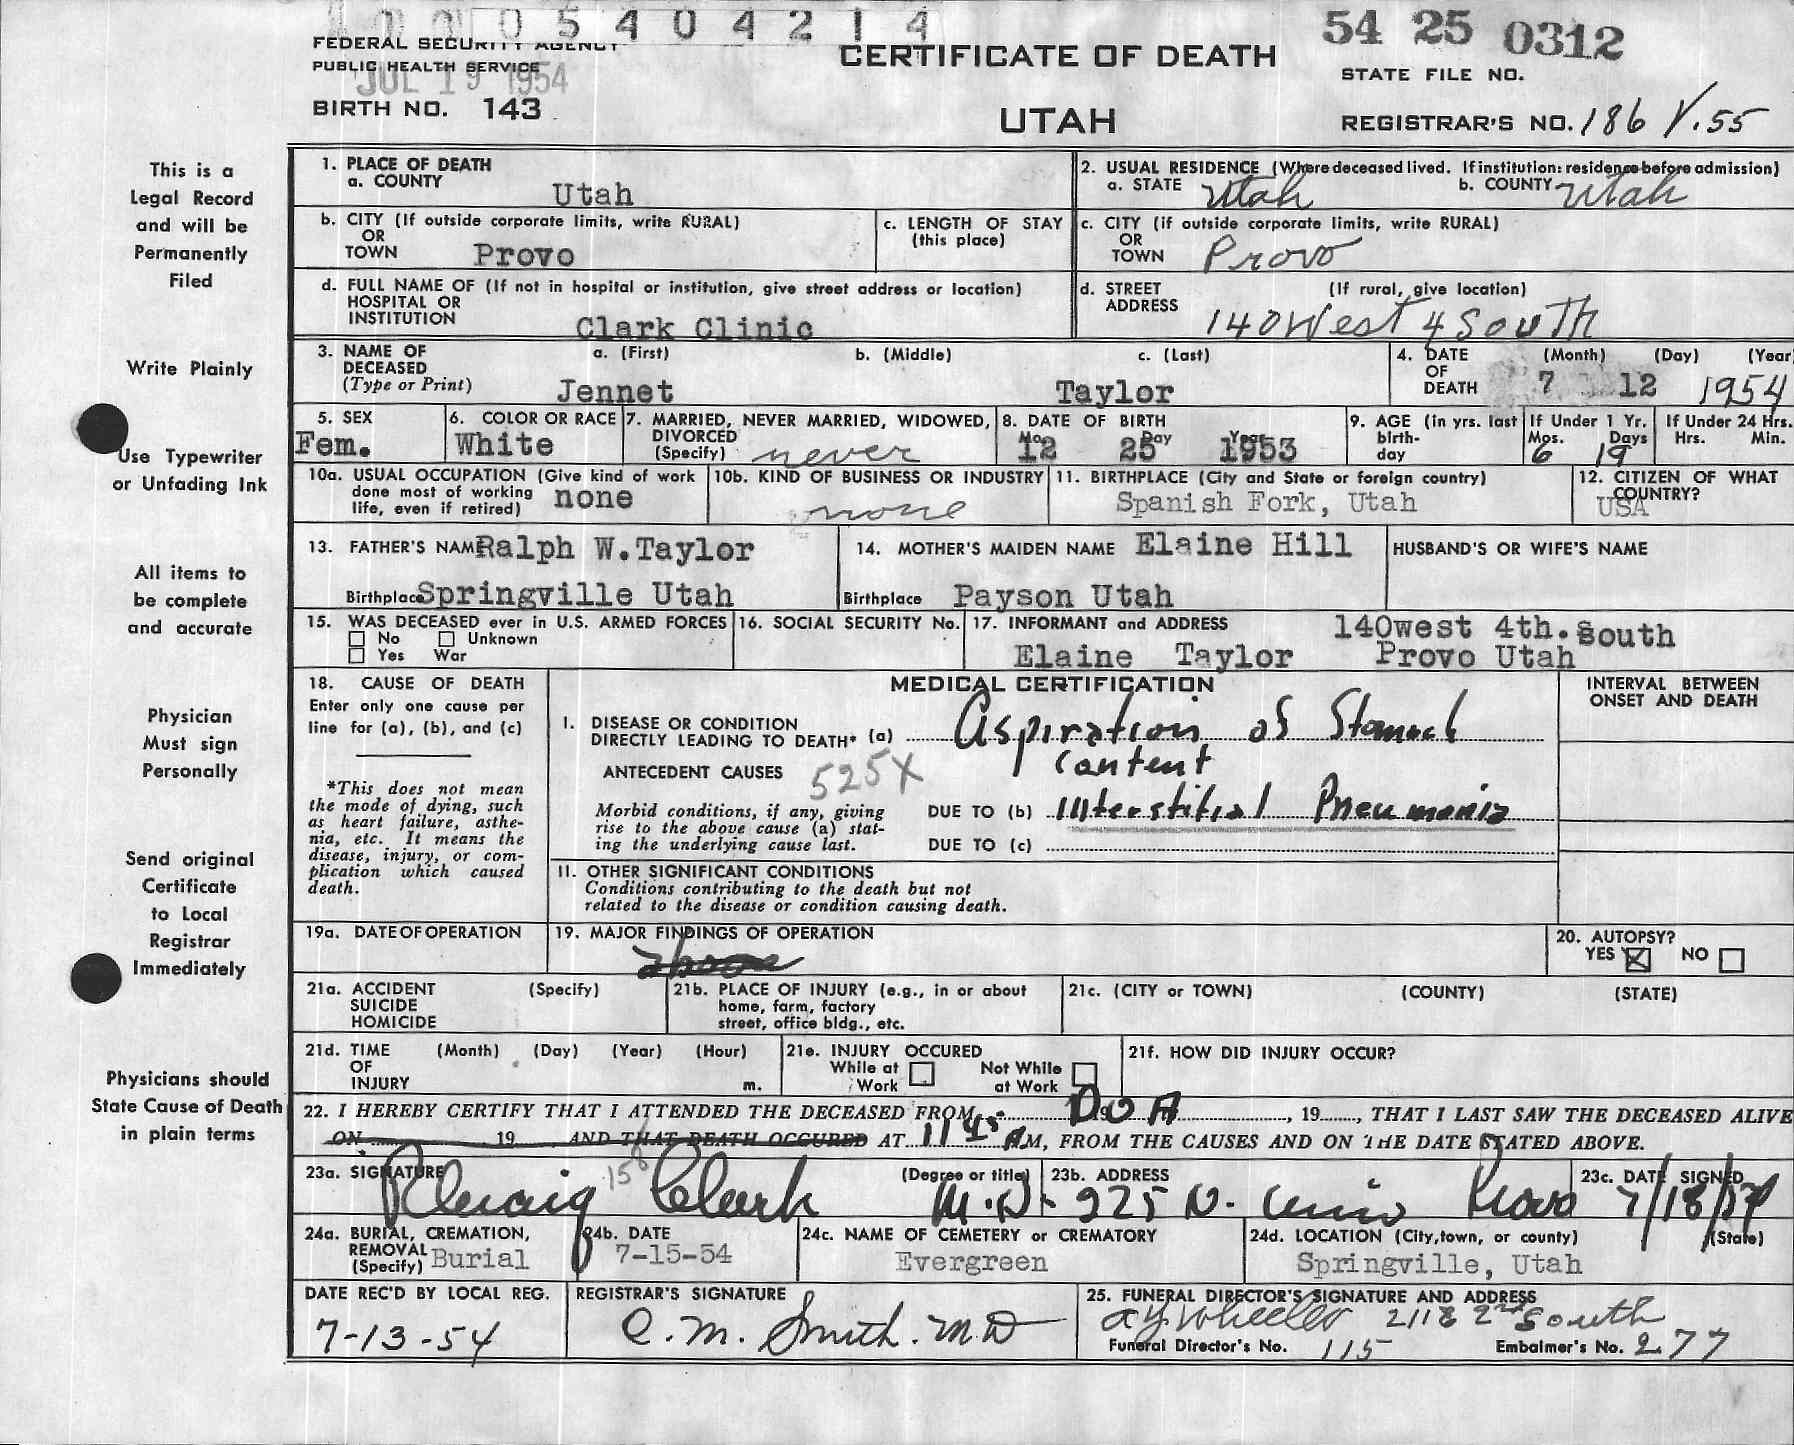 0 5 4 0 4 2 1 4
54 25 0312
FEDERAL SECURITY AGENCY
PUBLIC HEALTH SERVICE
JUL 19 1954
CERTIFICATE OF DEATH
STATE FILE NO.
BIRTH NO. 143
UTAH
REGISTRAR'S NO. 186 V.55
This is a
Legal Record
and will be
Permanently
Filed
Write Plainly
Use Typewriter
or Unfading Ink
All items to
be complete
and accurate
Physician
Must sign
Personally
Send original
Certificate
to Local
Registrar
Immediately
Physicians should
State Cause of Death
in plain terms
1. PLACE OF DEATH
a. COUNTY Utah
2. USUAL RESIDENCE (Where deceased lived. If institution: residence before admission)
a. STATE Utah b. COUNTY Utah
b. CITY (If outside corporate limits, write RURAL)
OR
TOWN Provo
c. LENGTH OF STAY
(this place)
c. CITY (if outside corporate limits, write RURAL)
OR
TOWN Provo
d. FULL NAME OF (If not in hospital or institution, give street address or location)
HOSPITAL OR
INSTITUTION Clark Clinic
d. STREET (If rural, give location)
ADDRESS 140 West 4 South
3. NAME OF a. (First) b. (Middle) c. (Last)
DECEASED
(Type or Print) Jennet Taylor
4. DATE (Month) (Day) (Year)
OF
DEATH 7 12 1954
5. SEX
Fem.
6. COLOR OR RACE
White
7. MARRIED, NEVER MARRIED, WIDOWED,
DIVORCED
(Specify) never
8. DATE OF BIRTH
Mo. Day Year
12 25 1953
9. AGE (in yrs. last
birth-
day
If Under 1 Yr.
Mos. Days
6 19
If Under 24 Hrs.
Hrs. Min.
10a. USUAL OCCUPATION (Give kind of work
done most of working
life, even if retired) none
10b. KIND OF BUSINESS OR INDUSTRY
none
11. BIRTHPLACE (City and State or foreign country)
Spanish Fork, Utah
12. CITIZEN OF WHAT
COUNTRY?
USA
13. FATHER'S NAME Ralph W.Taylor
Birthplace Springville Utah
14. MOTHER'S MAIDEN NAME Elaine Hill
Birthplace Payson Utah
HUSBAND'S OR WIFE'S NAME
15. WAS DECEASED ever in U.S. ARMED FORCES
No Unknown
Yes War
16. SOCIAL SECURITY No.
17. INFORMANT and ADDRESS 140west 4th. South
Elaine Taylor Provo Utah
18. CAUSE OF DEATH
Enter only one cause per
line for (a), (b), and (c)
*This does not mean
the mode of dying, such
as heart failure, asthe-
nia, etc. It means the
disease, injury, or com-
plication which caused
death.
MEDICAL CERTIFICATION
I. DISEASE OR CONDITION
DIRECTLY LEADING TO DEATH* (a) Aspiration of Stomach
content
ANTECEDENT CAUSES 525X
Morbid conditions, if any, giving
rise to the above cause (a) stat-
ing the underlying cause last.
DUE TO (b) Interstitial Pneumonia
DUE TO (c)
INTERVAL BETWEEN
ONSET AND DEATH
11. OTHER SIGNIFICANT CONDITIONS
Conditions contributing to the death but not
related to the disease or condition causing death.
19a. DATE OF OPERATION
19. MAJOR FINDINGS OF OPERATION
above
20. AUTOPSY?
YES NO
21a. ACCIDENT (Specify)
SUICIDE
HOMICIDE
21b. PLACE OF INJURY (e.g., in or about
home, farm, factory
street, office bldg., etc.
21c. (CITY or TOWN) (COUNTY) (STATE)
21d. TIME (Month) (Day) (Year) (Hour)
OF
INJURY m.
21e. INJURY OCCURED
While at Not While
Work at Work
21f. HOW DID INJURY OCCUR?
22. I HEREBY CERTIFY THAT I ATTENDED THE DECEASED FROM DOA, 19, THAT I LAST SAW THE DECEASED ALIVE
ON 19 AND THAT DEATH OCCURED AT 11 45 AM, FROM THE CAUSES AND ON THE DATE STATED ABOVE.
23a. SIGNATURE (Degree or title)
Craig Clark M.D.
158
23b. ADDRESS
925 N. Univ Provo
23c. DATE SIGNED
7/18/54
24a. BURIAL, CREMATION,
REMOVAL
(Specify) Burial
24b. DATE
7-15-54
24c. NAME OF CEMETERY or CREMATORY
Evergreen
24d. LOCATION (City, town, or county) (State)
Springville, Utah
DATE REC'D BY LOCAL REG.
7-13-54
REGISTRAR'S SIGNATURE
C.M. Smith. MD
25. FUNERAL DIRECTOR'S SIGNATURE AND ADDRESS
AY Wheeler 211 E 2nd South
Funeral Director's No. 115 Embalmer's No. 277